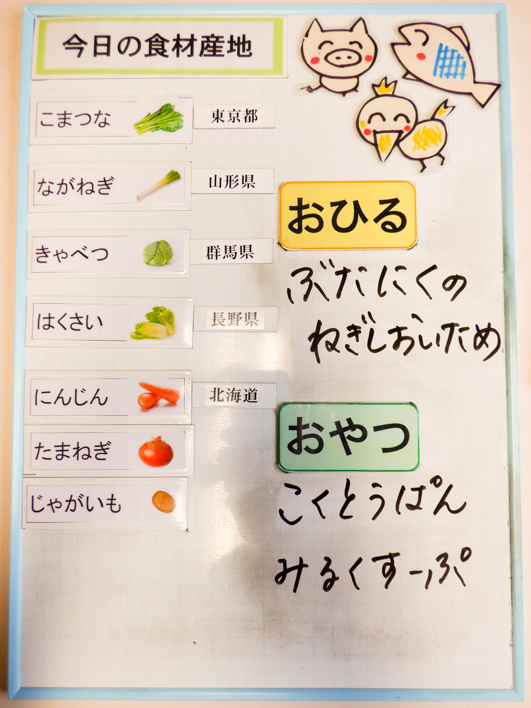 今日の食材産地
こまつな 東京都
ながねぎ 山形県
きゃべつ 群馬県
はくさい 長野県
にんじん 北海道
たまねぎ
じゃがいも
おひる
ぶたにくの
ねぎしおいため
おやつ
こくとうぱん
みるくすーぷ